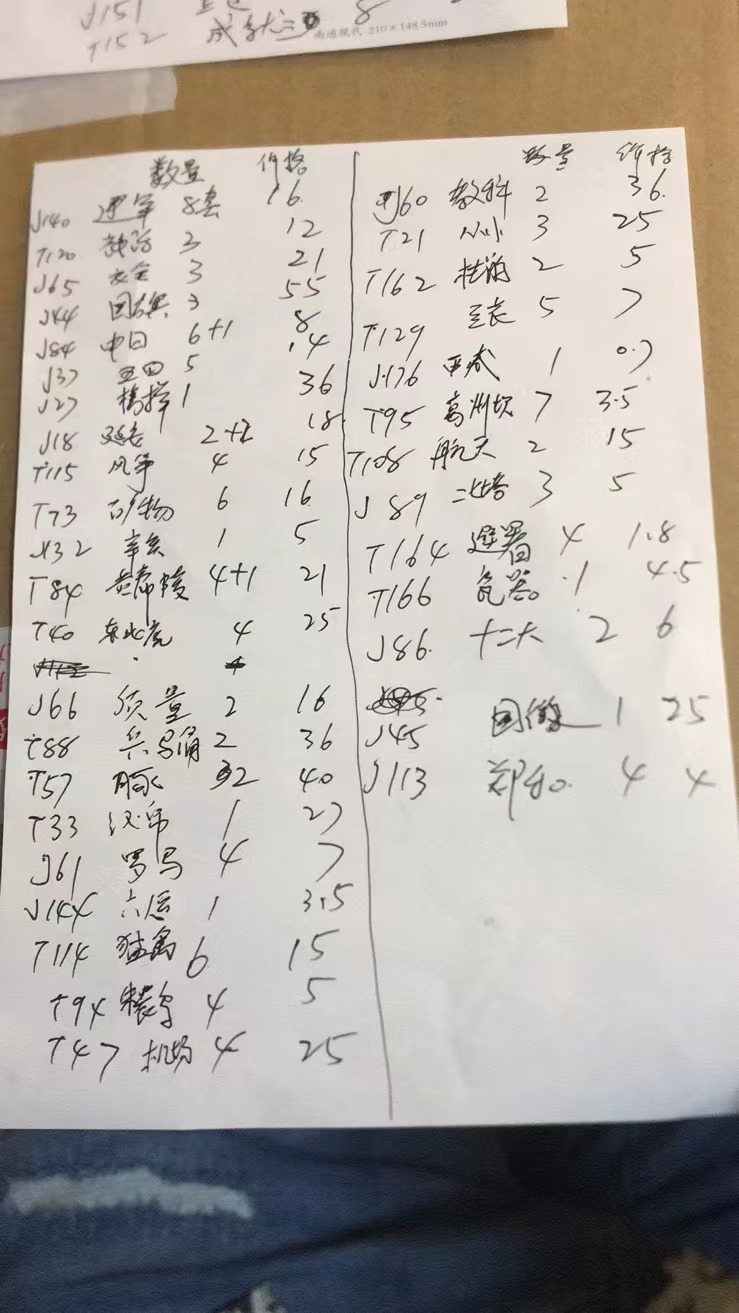 J151 8
T152
南通现代 210×148.5mm
数量 价格
J140 建军 8套 16
T120 3 12
J65 安全 3 21
J44 3 55
J84 中日 6+1 8
J37 五四 5 14
J27 1 36
J18 2+2 18
T115 风筝 4 15
T73 矿物 6 16
J132 辛亥 1 5
T84 黄帝陵 4+1 21
T40 东北虎 4 25
J66 质量 2 16
T88 兵马俑 2 36
T57 2 40
T33 1 27
J61 罗马 4 7
J144 六运 1 3.5
T114 猛禽 6 15
T94 朱鹮 4 5
T47 机场 4 25
数量 价格
J60 教科 2 36
T21 从小 3 25
T162 杜鹃 2 5
T129 兰花 5 7
J176 西藏 1 0.7
T95 葛州坝 7 3.5
T108 航天 2 15
J89 3 5
T164 避暑 4 1.8
T166 瓷器 1 4.5
J86 十二大 2 6
J45 国徽 1 25
J113 郑和 4 4